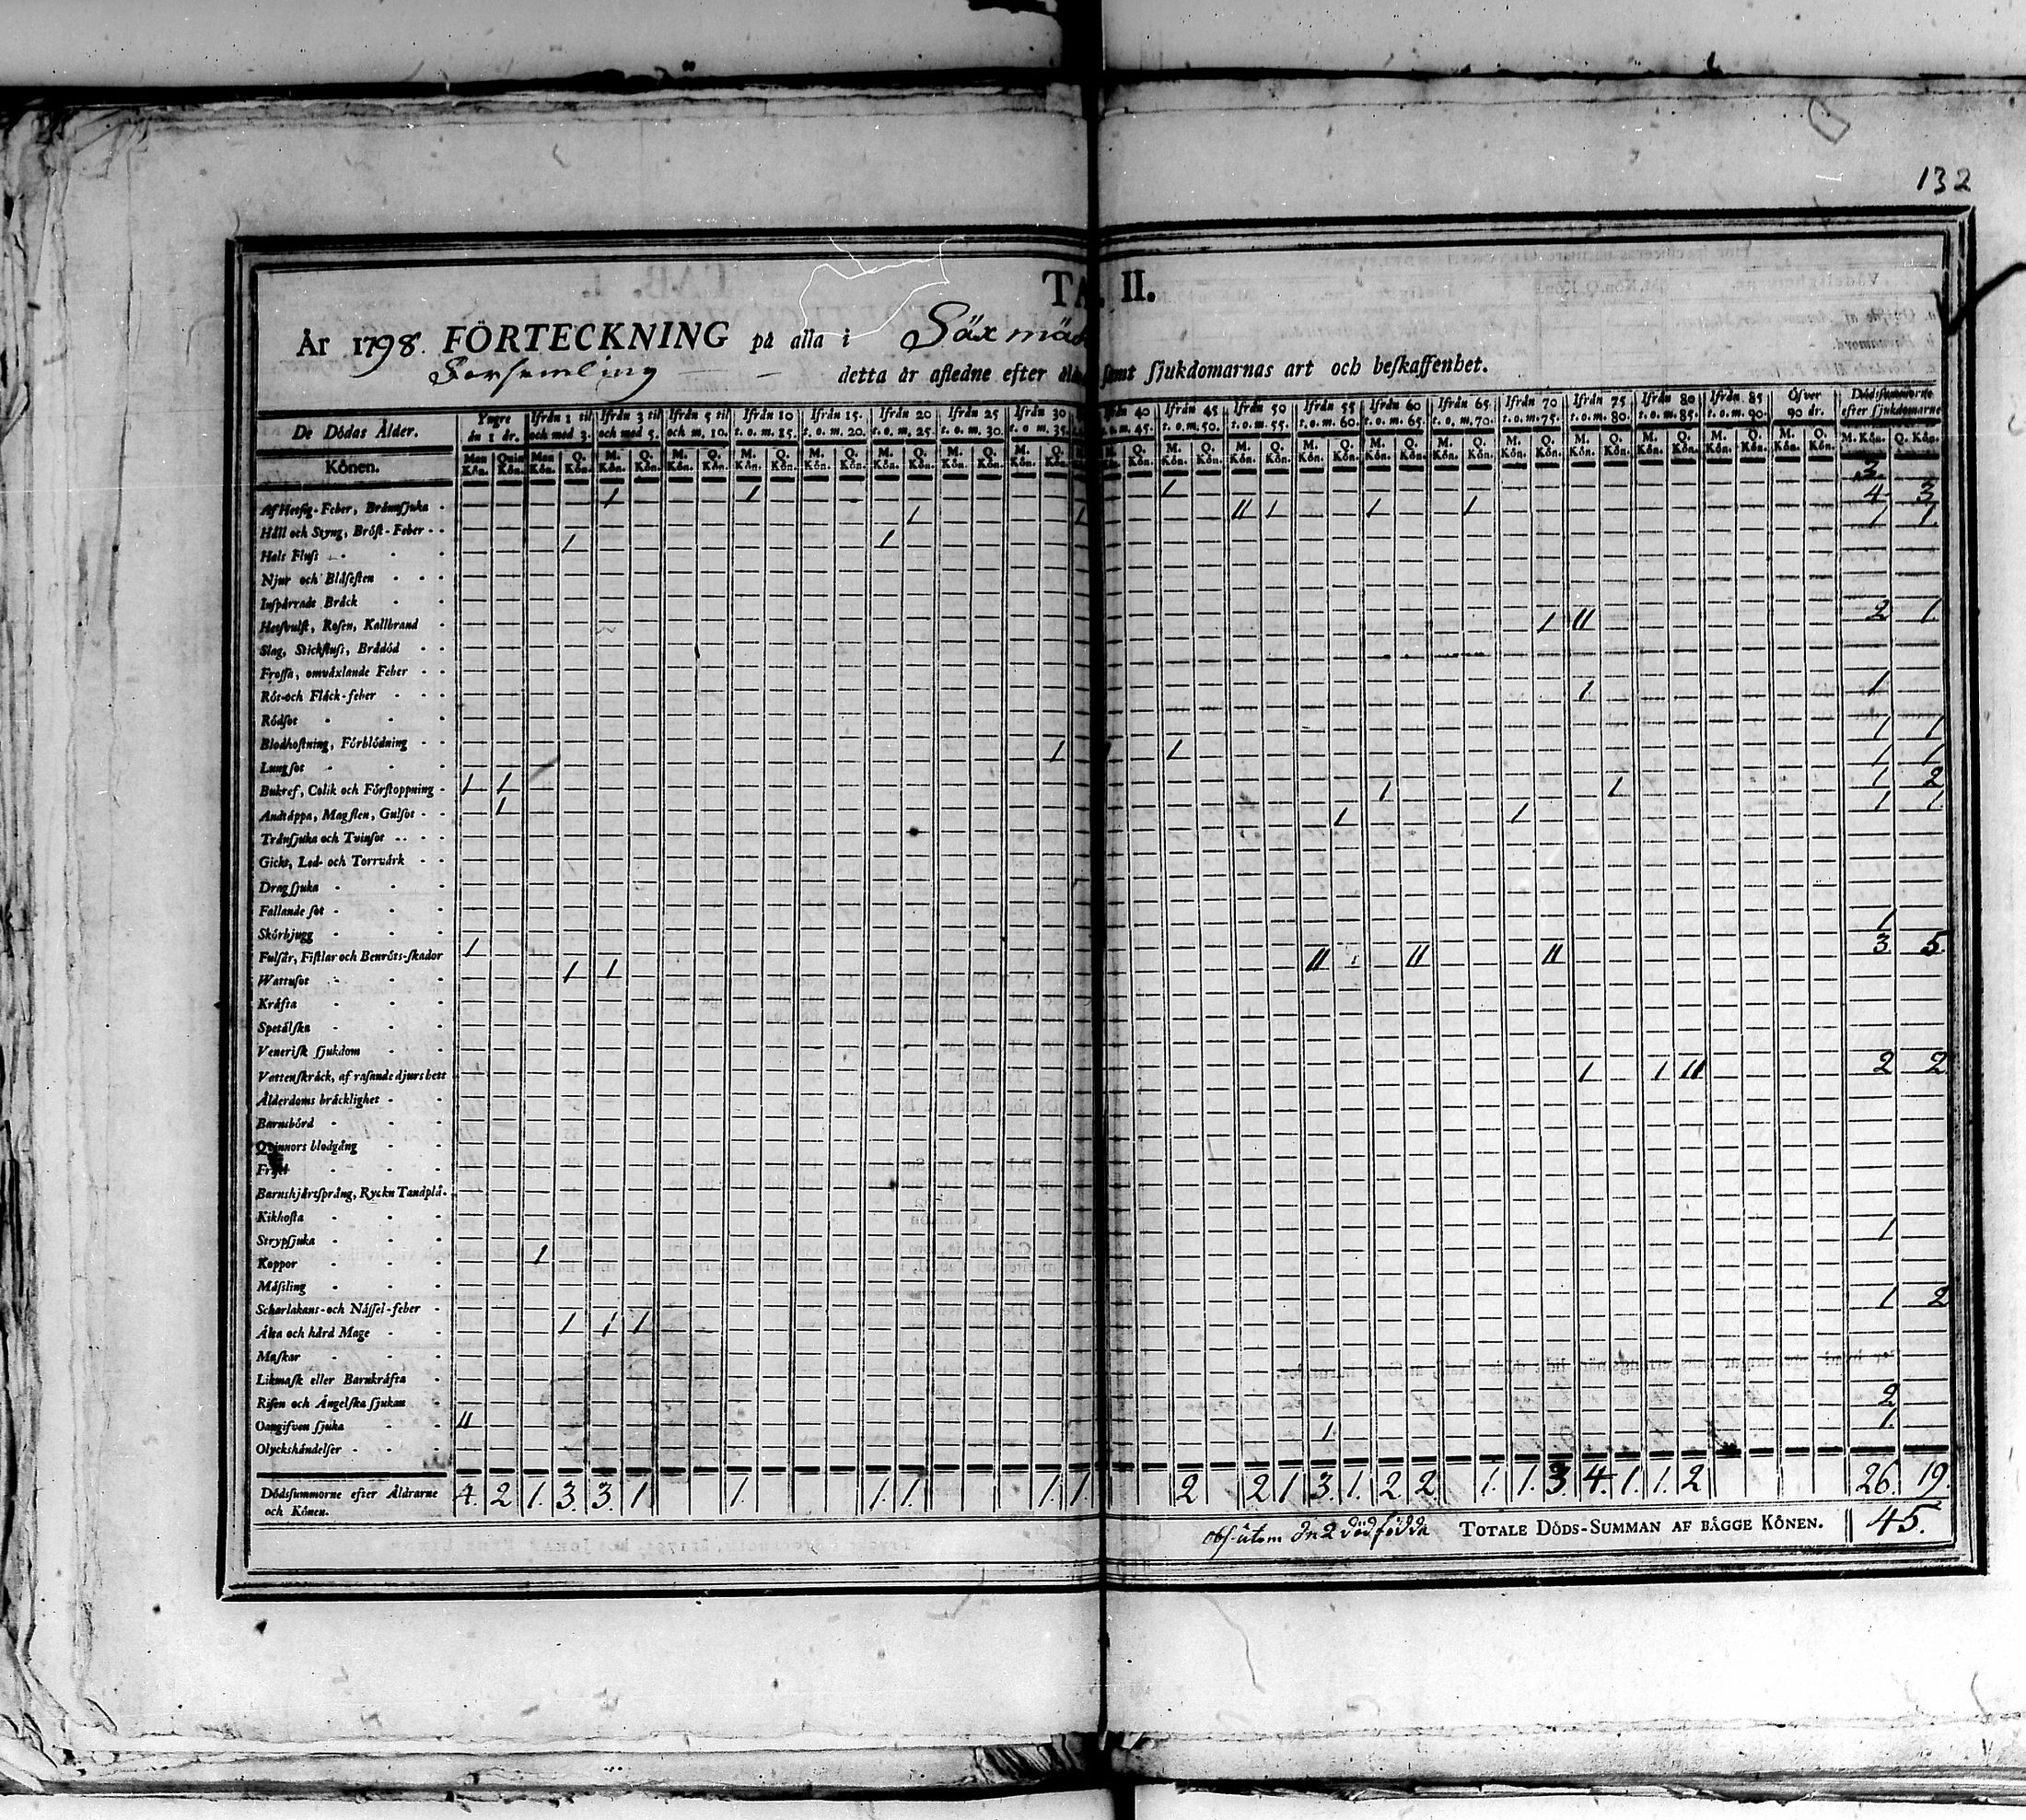 132
TA. II.
År 1798. FÖRTECKNING på alla i Säxmäk
Forsamling — — detta år afledne efter ålder samt sjukdomarnas art och beskaffenhet.
De Dödas Ålder. Yngre än 1 år. Ifrån 1 til och med 3. Ifrån 3 til och med 5. Ifrån 5 til och m. 10. Ifrån 10 t. o. m. 15. Ifrån 15. t. o. m. 20. Ifrån 20 t. o. m. 25. Ifrån 25 t. o. m. 30. Ifrån 30 t. o. m. 35. Ifrån 40 t. o. m. 45. Ifrån 45 t. o. m. 50. Ifrån 50 t. o. m. 55. Ifrån 55 t. o. m. 60. Ifrån 60 t. o. m. 65. Ifrån 65. t. o. m. 70. Ifrån 70 t. o. m. 75. Ifrån 75 t. o. m. 80. Ifrån 80 t. o. m. 85. Ifrån 85 t. o. m. 90. Öfver 90 år. Dödssummorne efter sjukdomarne
Könen. Man Kön. Quin Kön. Man Kön. Q. Kön. M. Kön. Q. Kön. M. Kön. Q. Kön. M. Kön. Q. Kön. M. Kön. Q. Kön. M. Kön. Q. Kön. M. Kön. Q. Kön. M. Kön. Q. Kön. Q. Kön. M. Kön. Q. Kön. M. Kön. Q. Kön. M. Kön. Q. Kön. M. Kön. Q. Kön. M. Kön. Q. Kön. M. Kön. Q. Kön. M. Kön. Q. Kön. M. Kön. Q. Kön. M. Kön. Q. Kön. M. Kön. Q. Kön. M. Kön. Q. Kön.
3
Af Hetsig-Feber, Brännsjuka 1 1 1 4 3
Håll och Styng, Bröst-Feber 1 1 II 1 1 1 1 1
Hals Fluss 1 1
Njur och Blåsesten
Inspärrade Bråck
Hetsvulst, Rosen, Kallbrand 1 II 2 1
Slag, Stickfluss, Brådöd
Frossa, omväxlande Feber
Röt-och Fläck-feber 1 1
Rödsot
Blodhostning, Förblödning 1 1 1 1
Lungsot 1 1
Bukref, Colik och Förstoppning 1 1 1 1 1 2
Andtäppa, Magsten, Gulsot 1 1 1 1 1
Trånsjuka och Tvinsot
Gickt, Led- och Torrvärk
Dragsjuka
Fallande sot
Skörbjugg 1
Fulsår, Fistlar och Benröts-skador 1 II II II 3 5.
Wattusot 1 1
Kräfta
Spetälska
Venerisk sjukdom
Vattenskräck, af rasande djurs bett 1 1 II 2 2
Ålderdoms bräcklighet
Barnsbörd
Qvinnors blodgång
Frisel
Barnshjärtsprång, Ryckn Tandplå.
Kikhosta
Strypsjuka 1
Koppor 1
Mässling
Scharlakans-och Nässel-feber 1 2
Älta och hård Mage 1 1 1
Maskar
Likmask eller Barnkräfta
Risen och Ängelska sjukan 2
Oangifven sjuka II 1 1.
Olyckshändelser
Dödssummorne efter Åldrarne och Könen. 4. 2 1. 3. 3. 1 1. 1. 1. 1. 1. 2 2 1 3. 1. 2 2 1. 1. 3. 4. 1. 1. 2 26. 19.
obs. utom de 2 dödfödda TOTALE DÖDS-SUMMAN AF BÄGGE KÖNEN. 45.